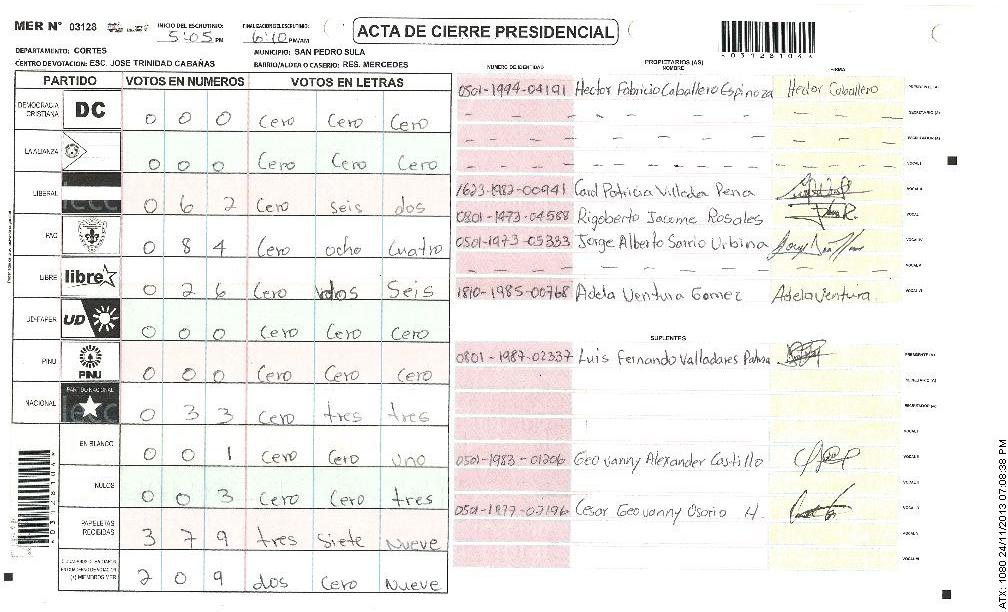 MER N° 03128
INICIO DEL ESCRUTINIO:
5:05 PM
FINALIZACION DEL ESCRUTINIO:
6:10 PM/AM
ACTA DE CIERRE PRESIDENCIAL
DEPARTAMENTO: CORTES
MUNICIPIO: SAN PEDRO SULA
CENTRO DE VOTACION: ESC. JOSE TRINIDAD CABAÑAS
BARRIO/ALDEA O CASERIO: RES. MERCEDES
PARTIDO VOTOS EN NUMEROS VOTOS EN LETRAS
DEMOCRACIA CRISTIANA DC 0 0 0 Cero Cero Cero
LA ALIANZA 0 0 0 Cero Cero Cero
LIBERAL 0 6 2 Cero seis dos
PAC 0 8 4 Cero ocho cuatro
LIBRE libre 0 2 6 Cero dos Seis
UD-FAPER UD 0 0 0 Cero Cero Cero
PINU PINU 0 0 0 Cero Cero Cero
NACIONAL PARTIDO NACIONAL 0 3 3 Cero tres tres
EN BLANCO 0 0 1 Cero Cero Uno
NULOS 0 0 3 Cero Cero tres
PAPELETAS RECIBIDAS 3 7 9 tres Siete Nueve
(+) MIEMBROS MER 2 0 9 dos Cero Nueve
NUMERO DE IDENTIDAD
PROPIETARIOS (AS)
NOMBRE
FIRMA
0501-1994-04191 Hector Fabricio Caballero Espinoza Hector Caballero
1623-1982-00941 Carol Patricia Villeda Pena
0801-1973-04588 Rigoberto Jacome Rosales
0501-1973-05333 Jorge Alberto Sorio Urbina
1810-1985-00768 Adela Ventura Gomez Adela Ventura
SUPLENTES
0801-1987-02337 Luis Fernando Valladares Palma
0501-1983-01206 Geovanny Alexander Castillo
0501-1977-02196 Cesar Geovanny Osorio H.
ATX: 1080 24/11/2013 07:08:38 PM